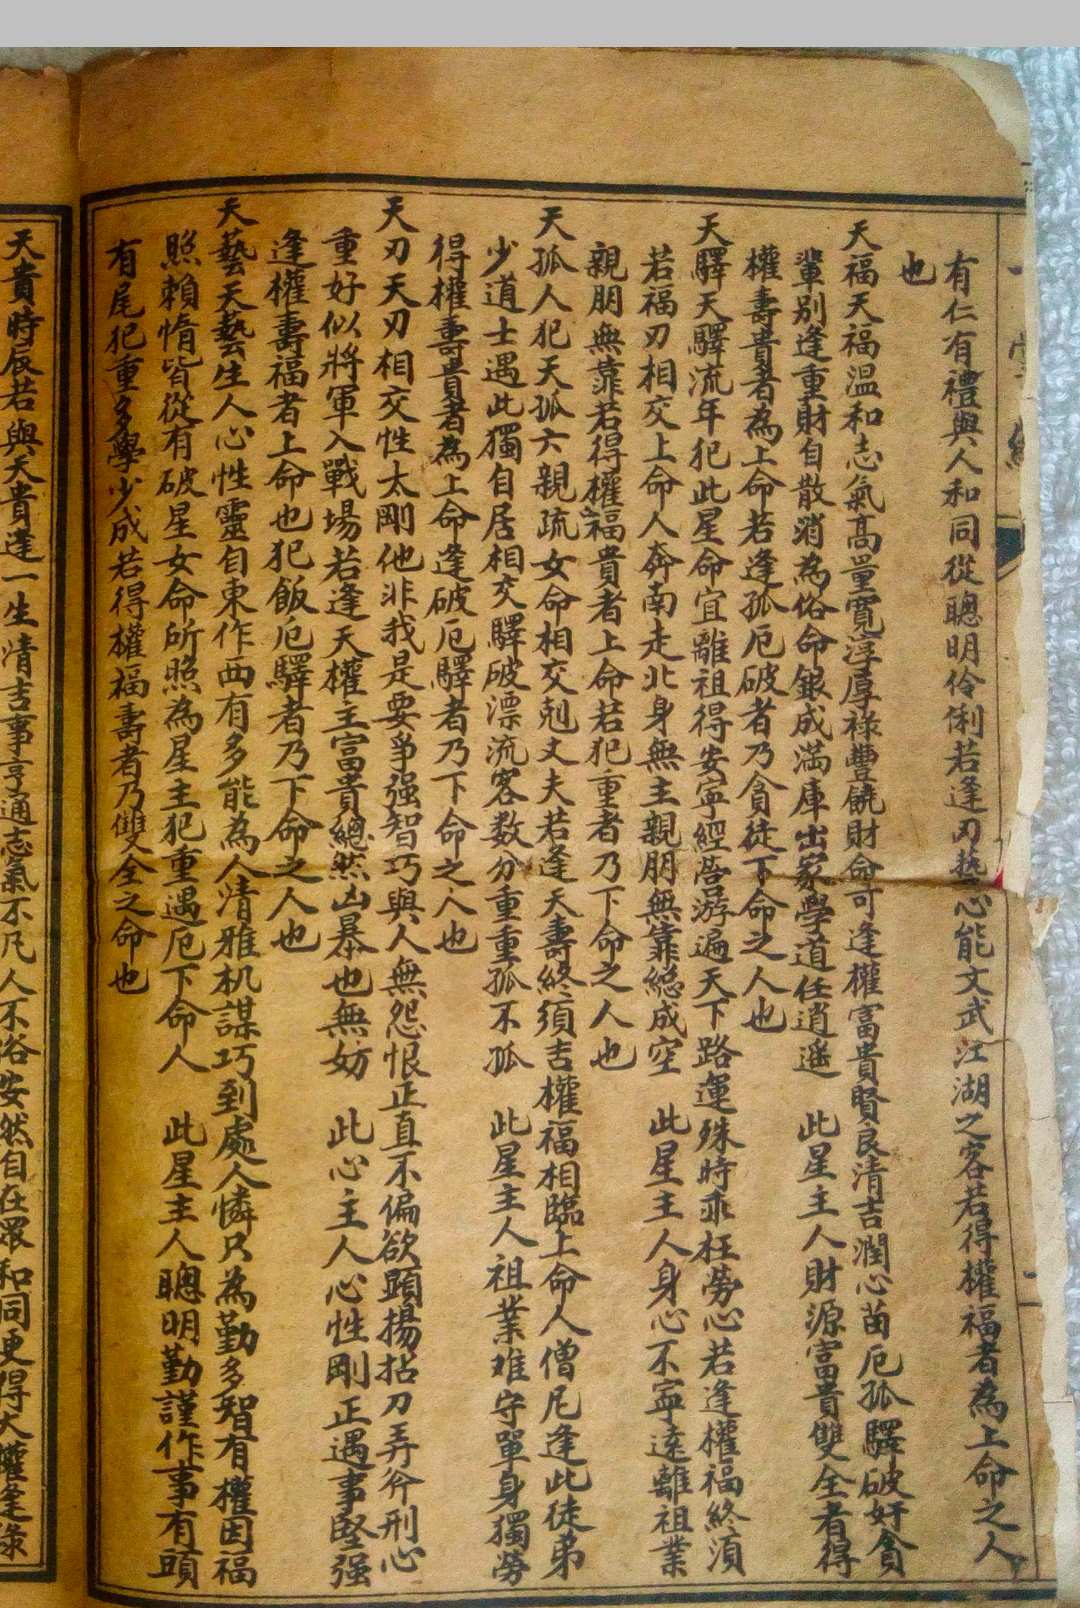 有仁有禮與人和同從聰明伶俐若逢刃藝心能文武江湖之客若得權福者為上命之人
也
天福天福温和志氣高量寬淳厚祿豐饒財命可逢權富貴賢良清吉潤心苗厄孤驛破奸貪
輩別逢重財自散消為俗命銀成滿庫出家學道任逍遥　此星主人財源富貴雙全者得
權壽貴者為上命若逢孤厄破者乃貪徒下命之人也
天驛天驛流年犯此星命宜離祖得安寧經營游遍天下路運殊時乖枉勞心若逢權福終須
若福刃相交上命人奔南走北身無主親朋無靠總成空　此星主人身心不寧遠離祖業
親朋無靠若得權福貴者上命若犯重者乃下命之人也
天孤人犯天孤六親疏女命相交剋丈夫若逢天壽終須吉權福相臨上命人僧尼逢此徒弟
少道士遇此獨自居相交驛破漂流客数分重重孤不孤　此星主人祖業难守單身獨勞
得權壽貴者為上命逢破厄驛者乃下命之人也
天刃天刃相交性太剛他非我是要爭强智巧與人無怨恨正直不偏欲顕揚拈刀弄斧刑心
重好似將軍入戰場若逢天權主富貴總然凶暴也無妨　此心主人心性剛正遇事堅强
逢權壽福者上命也犯飯厄驛者乃下命之人也
天藝天藝生人心性靈自東作西有多能為人清雅机謀巧到處人憐只為勤多智有權因福
照賴惰皆從有破星女命所照為星主犯重遇厄下命人　此星主人聰明勤謹作事有頭
有尾犯重多學少成若得權福壽者乃雙全之命也
天貴時辰若與天貴逢一生清吉事亨通志氣不凡人不俗安然自在眾和同更得大權逢祿